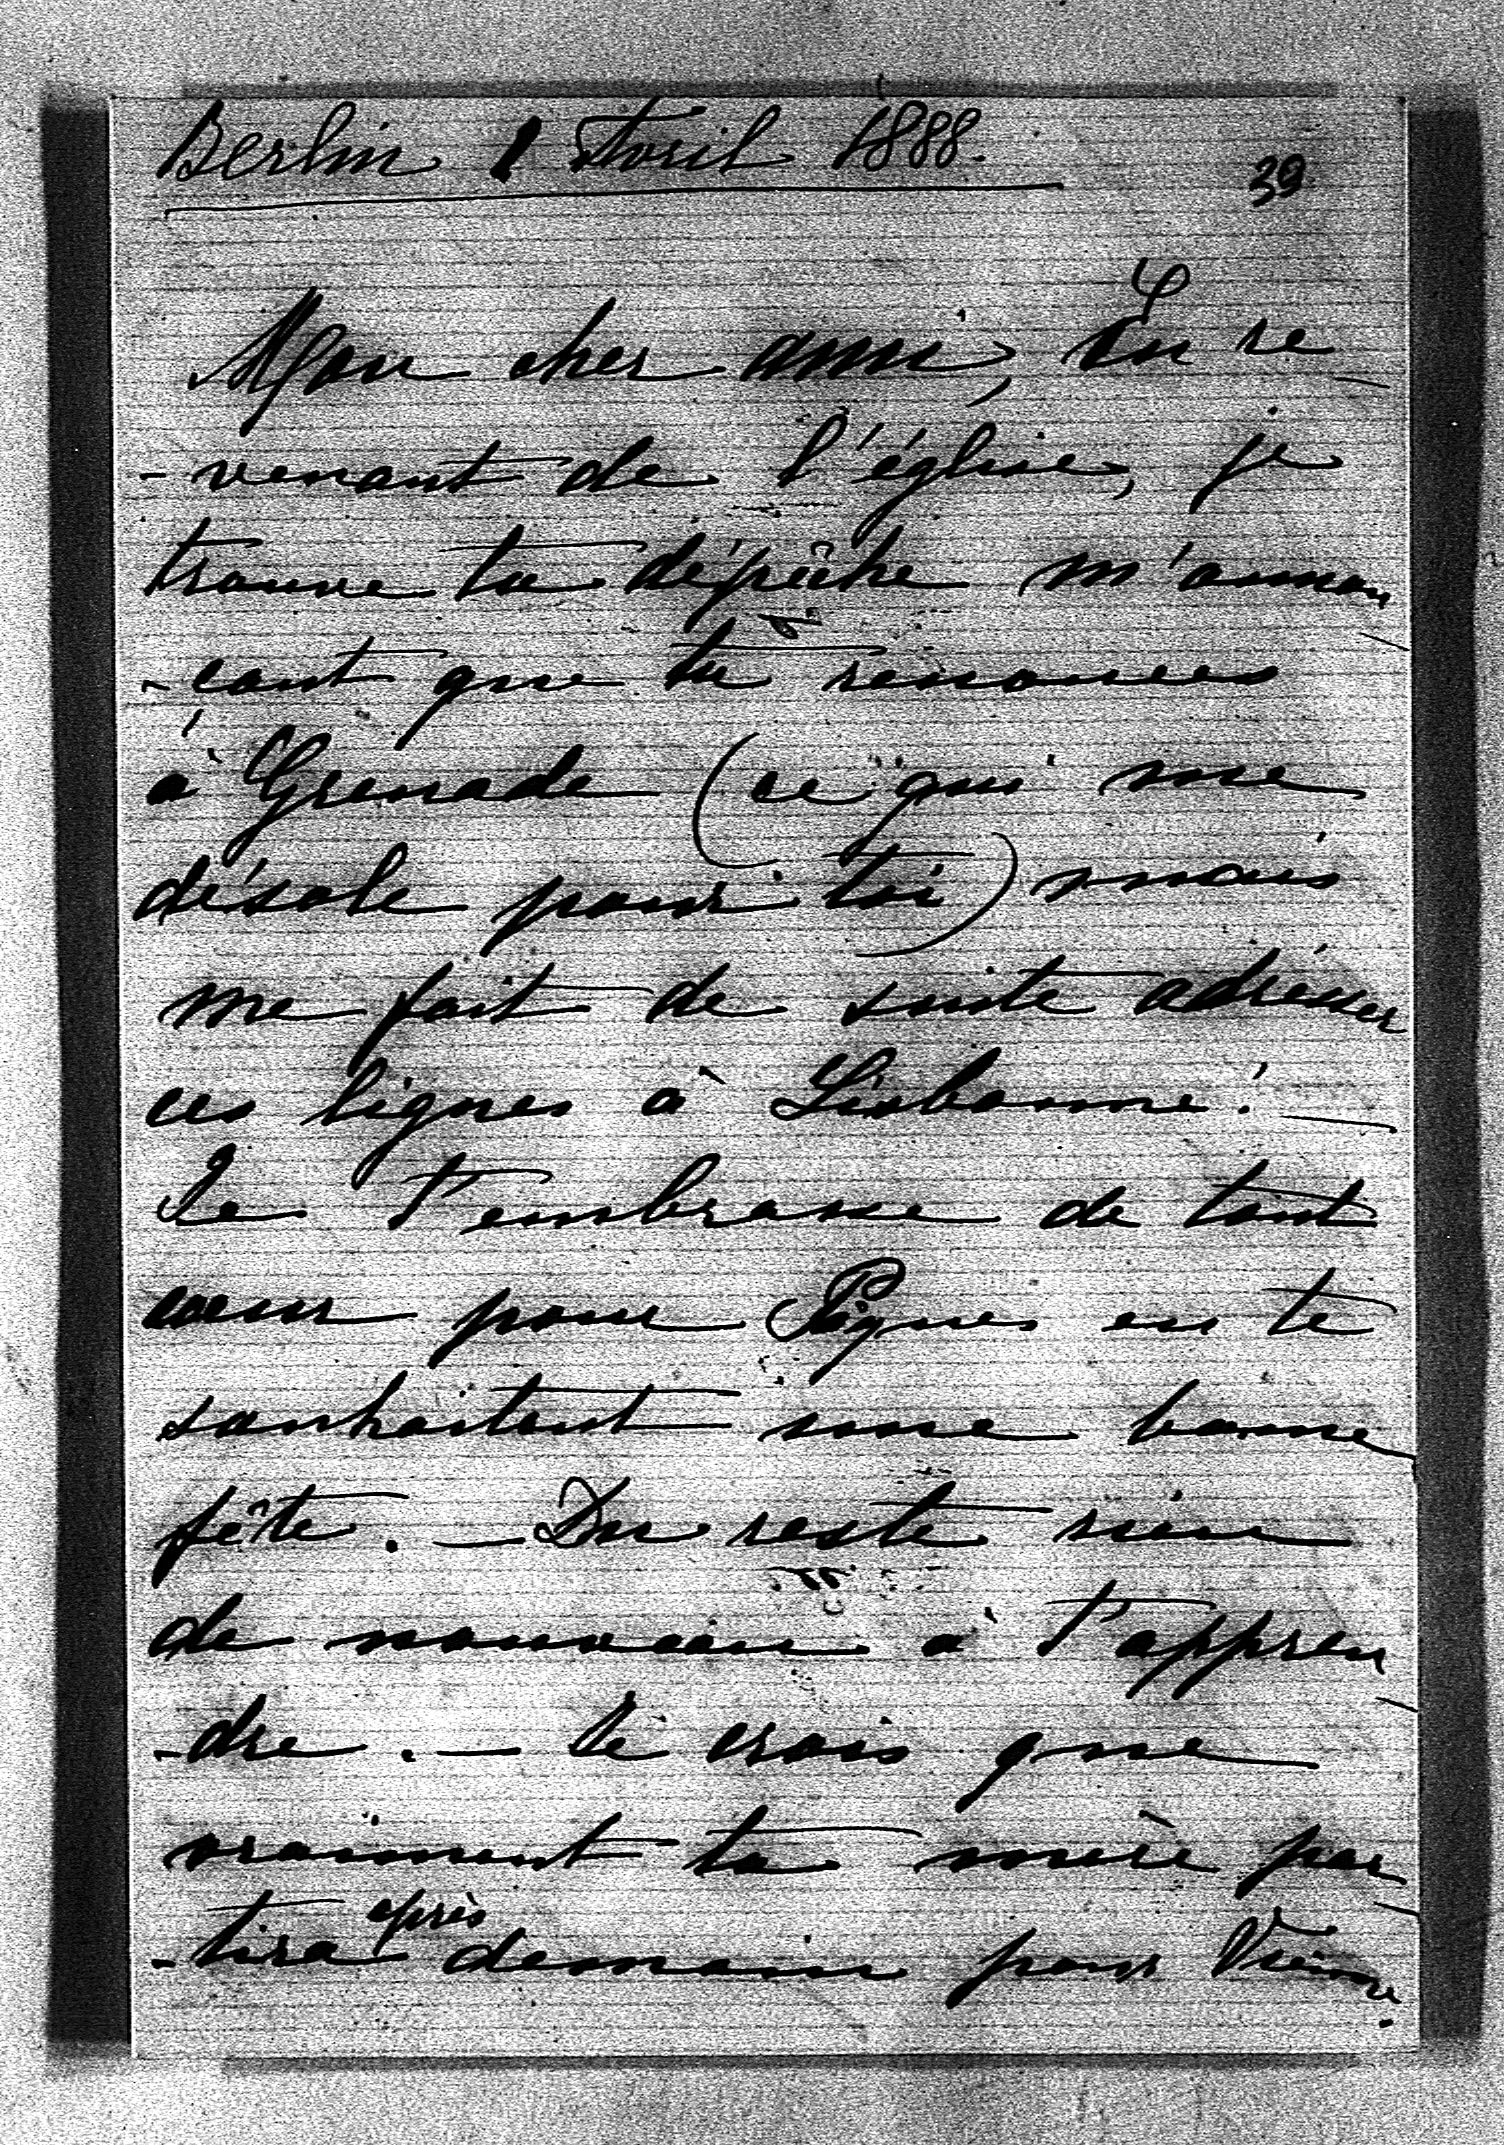 Berlin 1 Avril 1888.
39
Mon cher ami, En re-
-venant de l'église, je
trouve ta dépêche m'annon-
-cant que tu renonces
à Grenade (ce qui me
désole pour toi) mais
me fait de suite adresser
ces lignes à Lisbonne! —
Je t'embrasse de tout
coeur pour Pâques en te
souhaitant une bonne
fête. — Du reste rien
de nouveau à t'appren-
-dre. — Je crois que
vraiment ta mère par-
-tira après demain pour Vienne.